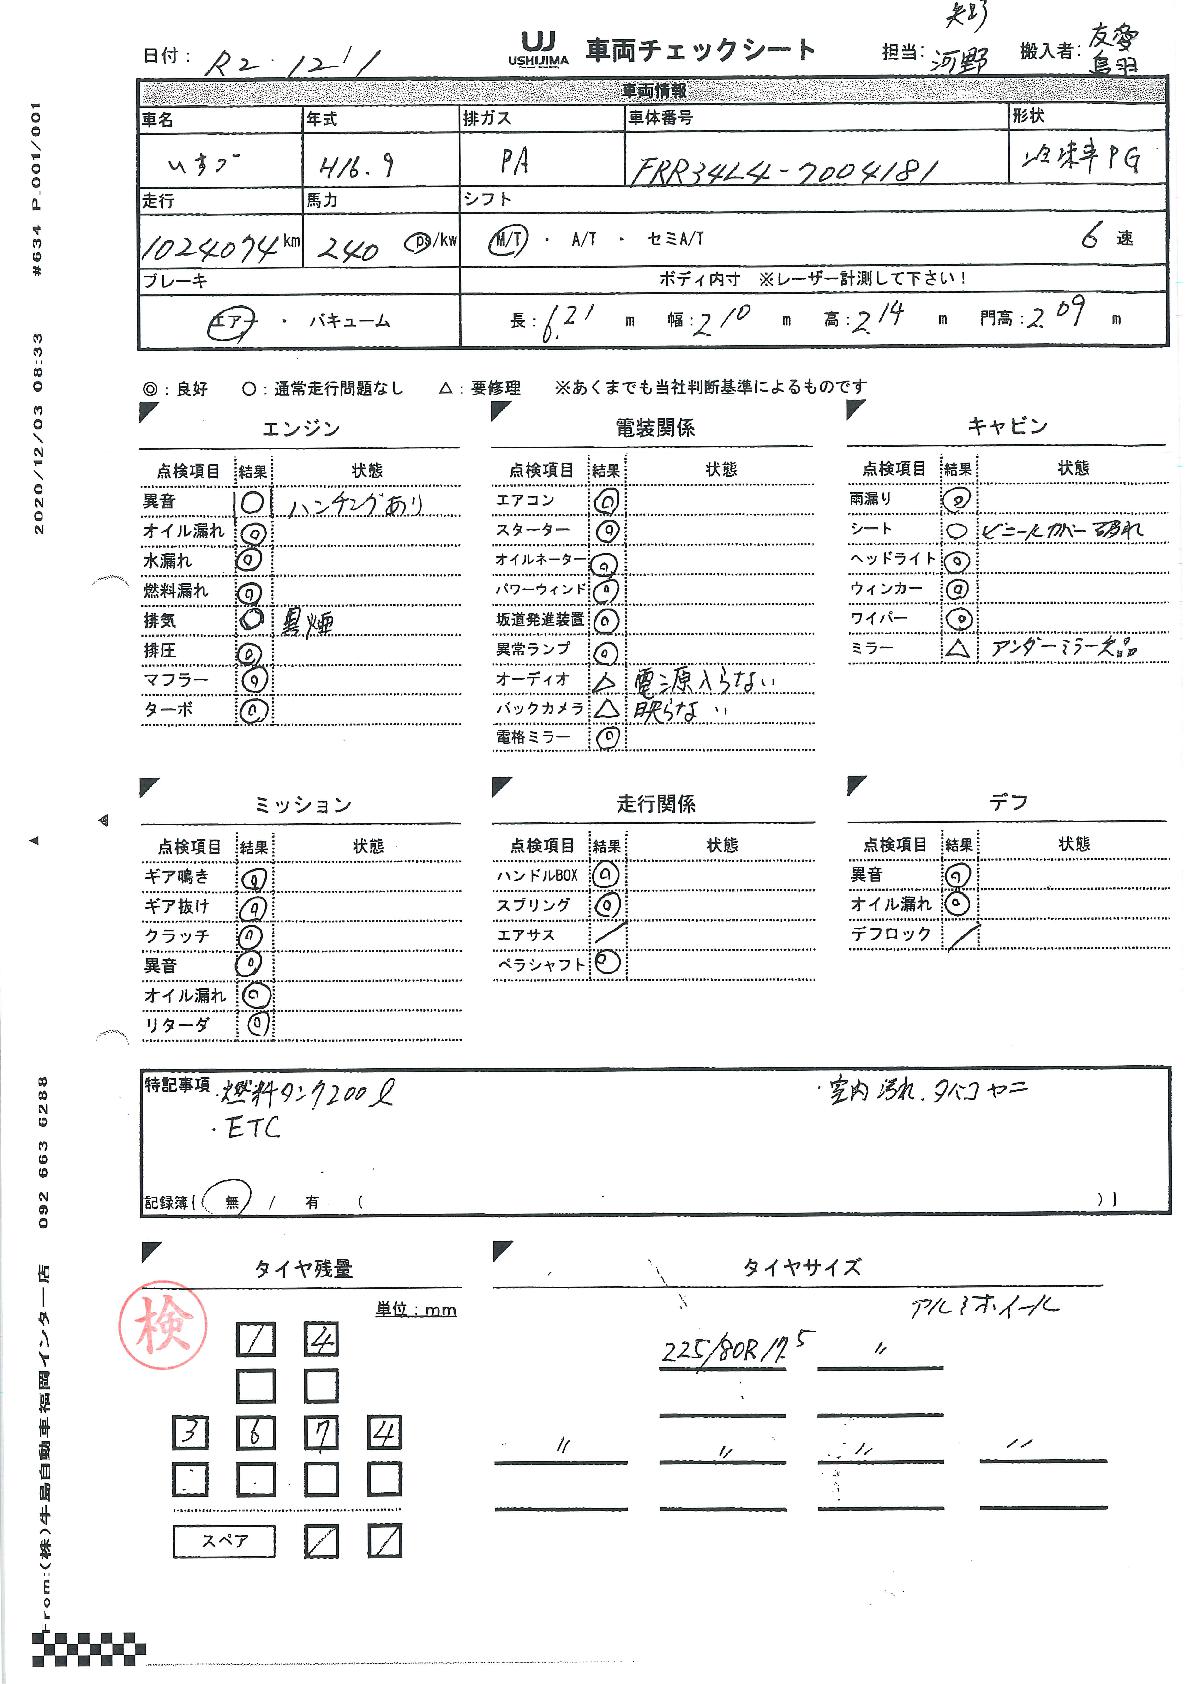 矢野
日付： R2.12.1 UJ USHIJIMA 車両チェックシート 担当：河野 搬入者：友愛 鳥羽
車両情報
車名 年式 排ガス 車体番号 形状
いすゞ H16.9 PA FRR34L4-7004181 冷凍車PG
走行 馬力 シフト
1024074km 240 ps/kw M/T ・ A/T ・ セミA/T 6 速
ブレーキ ボディ内寸 ※レーザー計測して下さい！
エアー ・ バキューム 長：6.21 m 幅：2.10 m 高：2.14 m 門高：2.09 m
◎：良好 〇：通常走行問題なし △：要修理 ※あくまでも当社判断基準によるものです
エンジン
点検項目 結果 状態
異音 〇 ハンチングあり
オイル漏れ ◎
水漏れ ◎
燃料漏れ ◎
排気 〇 黒煙
排圧 ◎
マフラー ◎
ターボ ◎
電装関係
点検項目 結果 状態
エアコン ◎
スターター ◎
オイルネーター ◎
パワーウィンド ◎
坂道発進装置 ◎
異常ランプ ◎
オーディオ △ 電源入らない
バックカメラ △ 映らない
電格ミラー ◎
キャビン
点検項目 結果 状態
雨漏り ◎
シート 〇 ビニールカバー破れ
ヘッドライト ◎
ウィンカー ◎
ワイパー ◎
ミラー △ アンダーミラー欠品
ミッション
点検項目 結果 状態
ギア鳴き ◎
ギア抜け ◎
クラッチ ◎
異音 ◎
オイル漏れ ◎
リターダ ◎
走行関係
点検項目 結果 状態
ハンドルBOX ◎
スプリング ◎
エアサス ／
ペラシャフト ◎
デフ
点検項目 結果 状態
異音 ◎
オイル漏れ ◎
デフロック ／
特記事項 ・燃料タンク200ℓ ・室内汚れ、タバコヤニ
・ETC
記録簿[ 無 / 有 ( )]
タイヤ残量
単位：mm
検
1 4
3 6 7 4
スペア / /
タイヤサイズ
アルミホイール
225/80R17.5 〃
〃 〃 〃 〃
2020/12/03 08:33 #634 P.001/001
From:(株)牛島自動車福岡インター店 092 663 6288